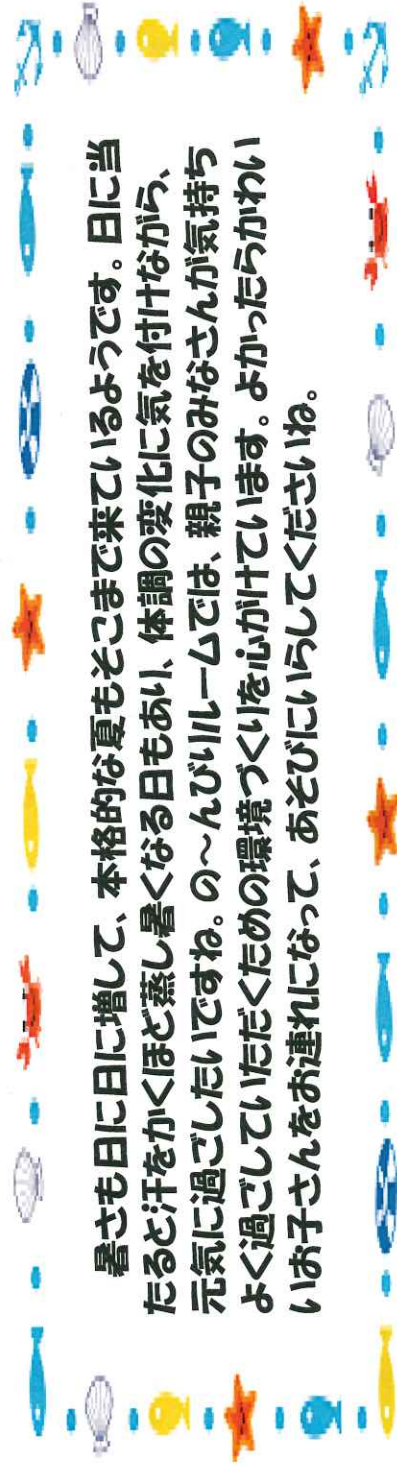 暑さも日に日に増して、本格的な夏もそこまで来ているようです。日に当
たると汗をかくほど蒸し暑くなる日もあり、体調の変化に気を付けながら、
元気に過ごしたいですね。の～んびりルームでは、親子のみなさんが気持ち
よく過ごしていただくための環境づくりを心がけています。よかったらかわい
いお子さんをお連れになって、あそびにいらしてくださいね。